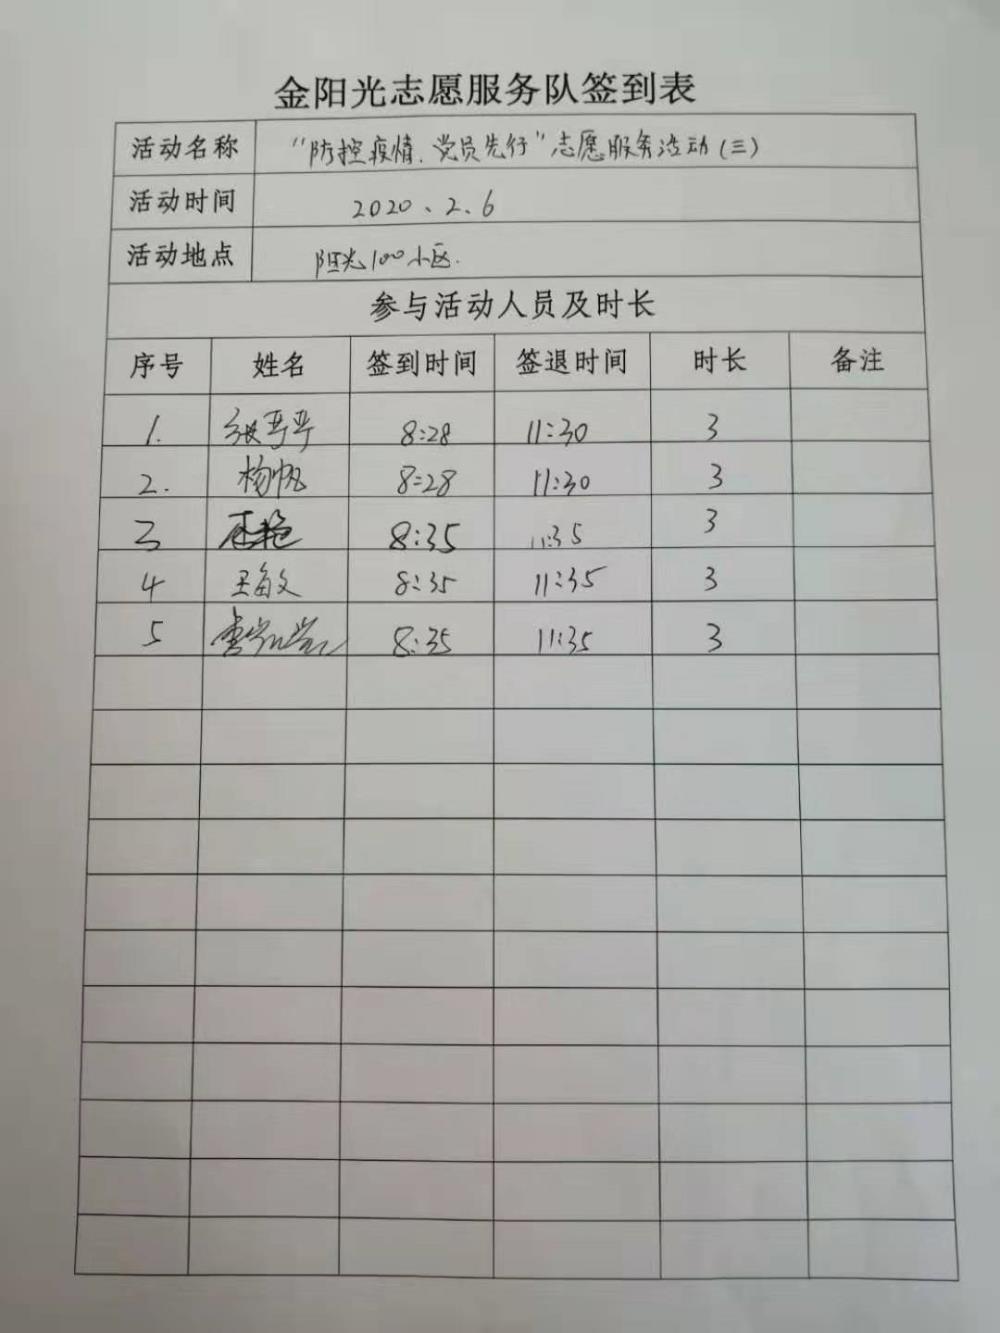 金阳光志愿服务队签到表
活动名称 "防控疫情、党员先行"志愿服务活动(三)
活动时间 2020、2、6
活动地点 阳光100小区.
参与活动人员及时长
序号 姓名 签到时间 签退时间 时长 备注
1. 张 8:28 11:30 3
2. 杨帆 8:28 11:30 3
3 8:35 11:35 3
4 王敏文 8:35 11:35 3
5 李 8:35 11:35 3